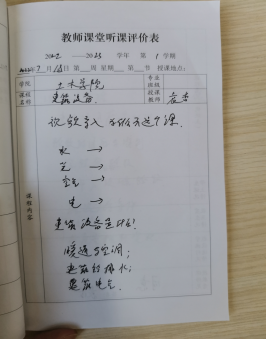 教师课堂听课评价表
2022—2023 学年 第 1 学期
月 日第 周 星期 第 节 授课地点:
学院 土木学院 专业班级
课程名称 建筑设备 授课教师
课程内容
水 →
→
→
电 →
建筑设备是什么?
暖通与空调;
建筑给排水;
建筑电气.